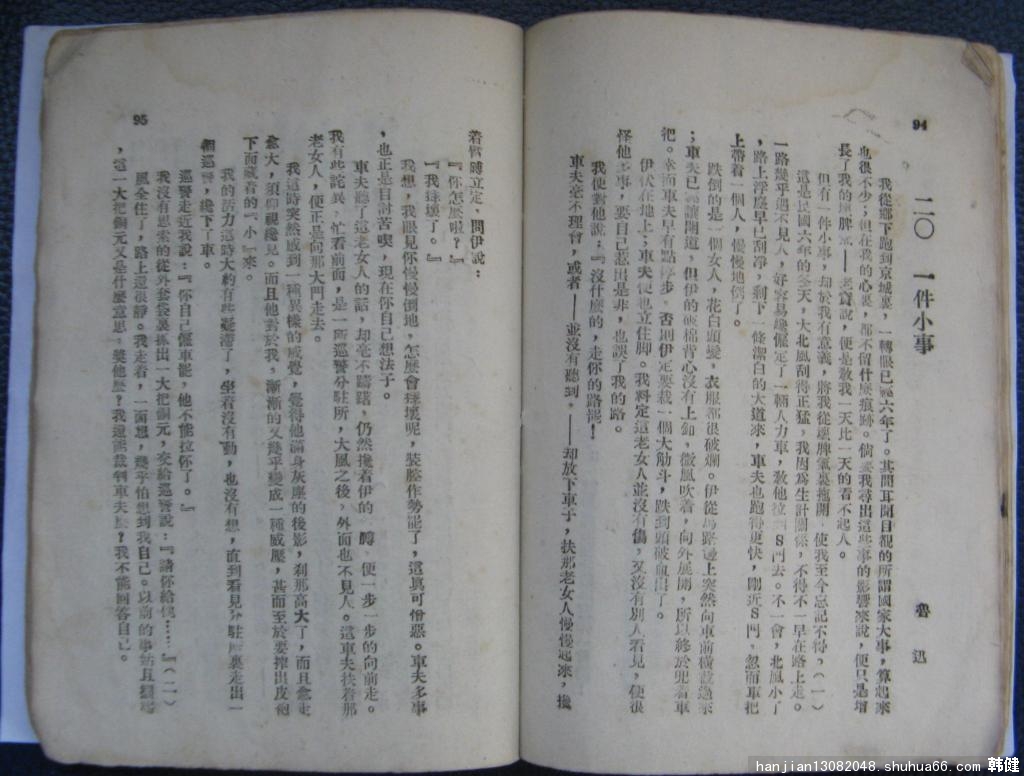 94
二〇 一件小事
魯迅
我從鄉下跑到京城裏，一轉眼已經六年了。其間耳聞目覩的所謂國家大事，算起來
也很不少；但在我的心裏，都不留什麼痕跡。倘要我尋出這些事的影響來說，便只是增
長了我的壞脾氣——老實說，便是敎我一天比一天的看不起人。
但有一件小事，却於我有意義，將我從壞脾氣裏拖開，使我至今忘記不得，（一）
這是民國六年的冬天，大北風刮得正猛，我因爲生計關係，不得不一早在路上走。
一路幾乎遇不見人，好容易纔僱定了一輛人力車，敎他拉到S門去。不一會，北風小了
，路上浮塵早已刮凈，剩下一條潔白的大道來，車夫也跑得更快，剛近S門，忽而車把
上帶着一個人，慢慢地倒了。
跌倒的是一個女人，花白頭髮，衣服都很破爛。伊從馬路邊上突然向車前橫截過來
；車夫已經讓開道，但伊的破棉背心沒有上釦，微風吹着，向外展開，所以終於兜着車
把。幸而車夫早有點停步，否則伊定要栽一個大觔斗，跌到頭破血出了。
伊伏在地上；車夫便也立住脚。我料定這老女人並沒有傷，又沒有別人看見，便很
怪他多事，要自己惹出是非，也誤了我的路。
我便對他說：『沒什麼的，走你的路罷！
車夫毫不理會，或者——並沒有聽到，——却放下車子，扶那老女人慢慢起來，攙
95
着臂膊立定，問伊說：
『你怎麼啦？』
『我摔壞了。』
我想，我眼見你慢慢倒地，怎麼會摔壞呢，裝腔作勢罷了，這眞可憎惡。車夫多事
，也正是自討苦喫，現在你自己想法子。
車夫聽了這老女人的話，却毫不躊躇，仍然攙着伊的 膊，便一步一步的向前走。
我有些詫異，忙看前面，是一所巡警分駐所，大風之後，外面也不見人。這車夫扶着那
老女人，便正是向那大門走去。
我這時突然感到一種異樣的感覺，覺得他滿身灰塵的後影，刹那高大了，而且愈走
愈大，須仰視纔見。而且他對於我，漸漸的又幾乎變成一種威壓，甚而至於要榨出皮袍
下面藏着的『小』來。
我的活力這時大約有些凝滯了，坐着沒有動，也沒有想，直到看見分駐所裏走出一
個巡警，纔下了車。
巡警走近我說：『你自己僱車罷，他不能拉你了。』
我沒有思索的從外套袋裏抓出一大把銅元，交給巡警說：『請你給他……』（二）
風全住了，路上還很靜。我走着，一面想，幾乎怕想到我自己。以前的事姑且擱起
，這一大把銅元又是什麼意思？獎他麼？我還能裁判車夫麼？我不能回答自己。
hanjian13082048.shuhua66.com 韩健